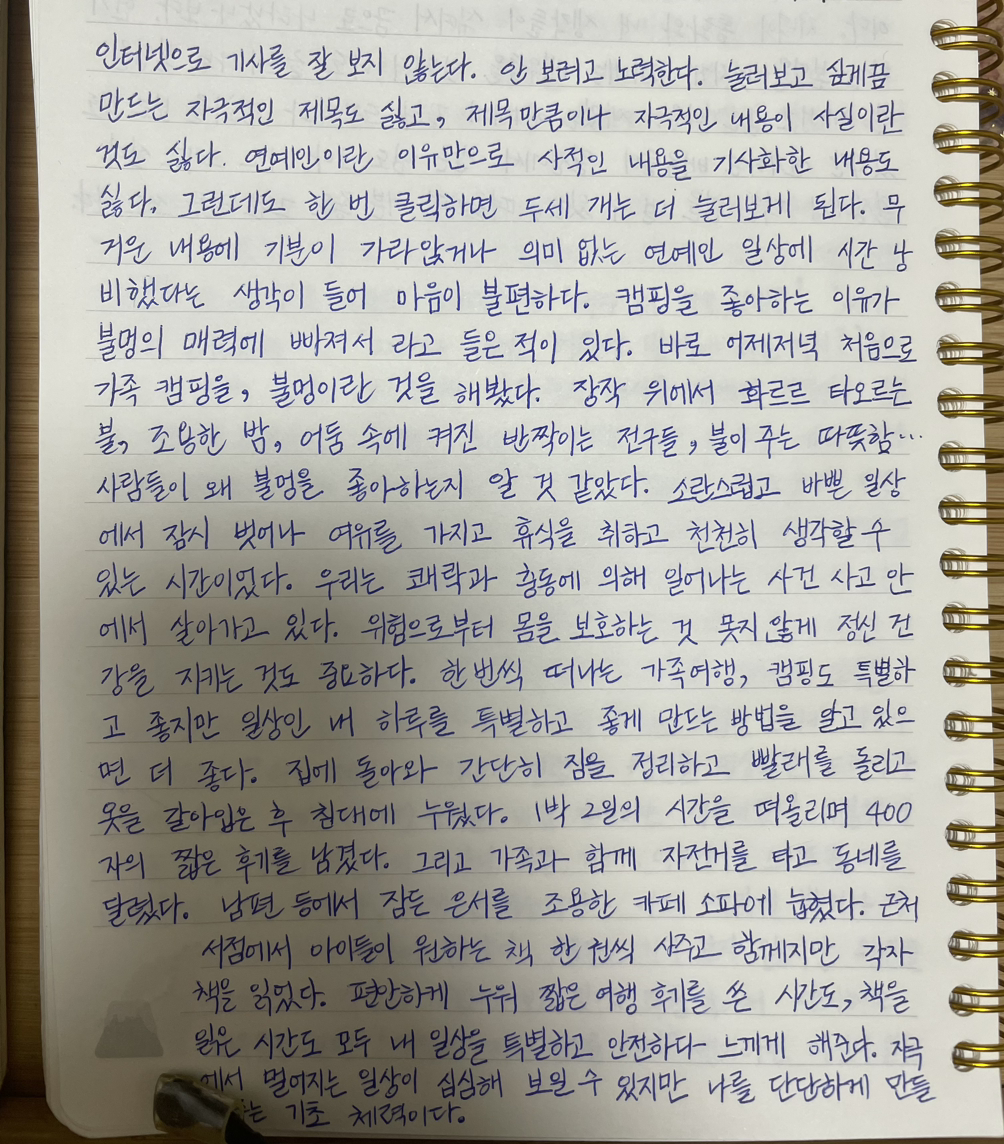 인터넷으로 기사를 잘 보지 않는다. 안 보려고 노력한다. 눌러보고 싶게끔
만드는 자극적인 제목도 싫고, 제목만큼이나 자극적인 내용이 사실이란
것도 싫다. 연예인이란 이유만으로 사적인 내용을 기사화한 내용도
싫다. 그런데도 한 번 클릭하면 두세 개는 더 눌러보게 된다. 무
거운 내용에 기분이 가라앉거나 의미 없는 연예인 일상에 시간 낭
비했다는 생각이 들어 마음이 불편하다. 캠핑을 좋아하는 이유가
불멍의 매력에 빠져서 라고 들은 적이 있다. 바로 어제저녁 처음으로
가족 캠핑을, 불멍이란 것을 해봤다. 장작 위에서 화르르 타오르는
불, 조용한 밤, 어둠 속에 켜진 반짝이는 전구들, 불이 주는 따뜻함…
사람들이 왜 불멍을 좋아하는지 알 것 같았다. 소란스럽고 바쁜 일상
에서 잠시 벗어나 여유를 가지고 휴식을 취하고 천천히 생각할 수
있는 시간이었다. 우리는 쾌락과 충동에 의해 일어나는 사건 사고 안
에서 살아가고 있다. 위험으로부터 몸을 보호하는 것 못지 않게 정신 건
강을 지키는 것도 중요하다. 한 번씩 떠나는 가족여행, 캠핑도 특별하
고 좋지만 일상인 내 하루를 특별하고 좋게 만드는 방법을 알고 있으
면 더 좋다. 집에 돌아와 간단히 짐을 정리하고 빨래를 돌리고
옷을 갈아입은 후 침대에 누웠다. 1박 2일의 시간을 떠올리며 400
자의 짧은 후기를 남겼다. 그리고 가족과 함께 자전거를 타고 동네를
달렸다. 남편 등에서 잠든 은서를 조용한 카페 소파에 눕혔다. 근처
서점에서 아이들이 원하는 책 한 권씩 사주고 함께지만 각자
책을 읽었다. 편안하게 누워 짧은 여행 후기를 쓴 시간도, 책을
읽은 시간도 모두 내 일상을 특별하고 안전하다 느끼게 해준다. 자극
에서 멀어지는 일상이 심심해 보일 수 있지만 나를 단단하게 만들
는 기초 체력이다.